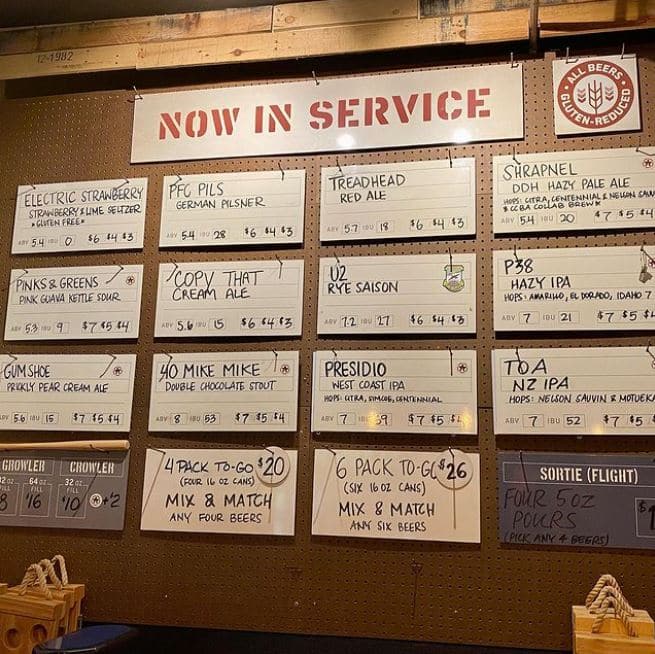 12-1982
NOW IN SERVICE
ALL BEERS
GLUTEN-REDUCED
ELECTRIC STRAWBERRY
STRAWBERRY & LIME SELTZER
*GLUTEN FREE*
ABV 5.4 IBU 0 $6 $4 $3
PFC PILS
GERMAN PILSNER
ABV 5.4 IBU 28 $6 $4 $3
TREADHEAD
RED ALE
ABV 5.7 IBU 18 $6 $4 $3
SHRAPNEL
DDH HAZY PALE ALE
HOPS: CITRA, CENTENNIAL & NELSON SAUV
* CCBA COLLAB BREW *
ABV 5.4 IBU 20 $7 $5 $4
PINKS & GREENS
PINK GUAVA KETTLE SOUR
ABV 5.3 IBU 9 $7 $5 $4
COPY THAT
CREAM ALE
ABV 5.6 IBU 15 $6 $4 $3
U2
RYE SAISON
ABV 7.2 IBU 27 $6 $4 $3
P38
HAZY IPA
HOPS: AMARILLO, EL DORADO, IDAHO 7
ABV 7 IBU 21 $7 $5 $4
GUMSHOE
PRICKLY PEAR CREAM ALE
ABV 5.6 IBU 15 $7 $5 $4
40 MIKE MIKE
DOUBLE CHOCOLATE STOUT
ABV 8 IBU 53 $7 $5 $4
PRESIDIO
WEST COAST IPA
HOPS: CITRA, SIMCOE, CENTENNIAL
ABV 7 IBU 39 $7 $5 $4
TOA
NZ IPA
HOPS: NELSON SAUVIN & MOTUEKA
ABV 7 IBU 52 $7 $5
GROWLER CROWLER
32 OZ FILL 64 OZ FILL 32 OZ FILL
8 $16 $10 +2
4 PACK TO-GO $20
(FOUR 16 OZ CANS)
MIX & MATCH
ANY FOUR BEERS
6 PACK TO-GO $26
(SIX 16 OZ CANS)
MIX & MATCH
ANY SIX BEERS
SORTIE (FLIGHT)
FOUR 5 OZ
POURS
(PICK ANY 4 BEERS)